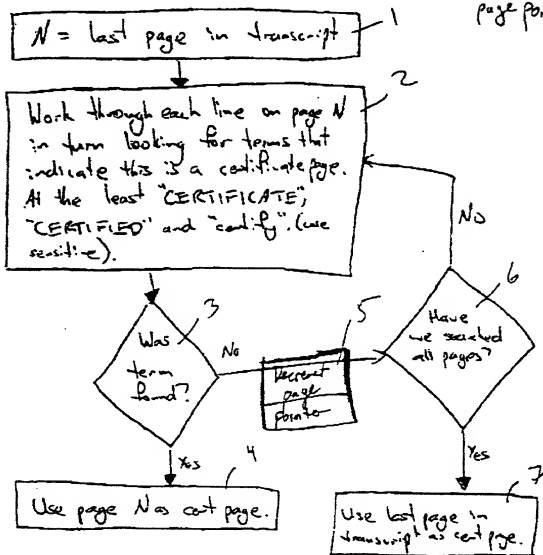 page po
N = last page in transcript
1
2
Work through each line on page N
in turn looking for terms that
indicate this is a certificate page.
At the least "CERTIFICATE",
"CERTIFIED" and "certify". (case
sensitive).
No
3
Was
term
found?
No
5
Decrement
page
pointer
6
Have
we searched
all pages?
Yes
4
Use page N as cert page.
Yes
7
Use last page in
transcript as cert page.